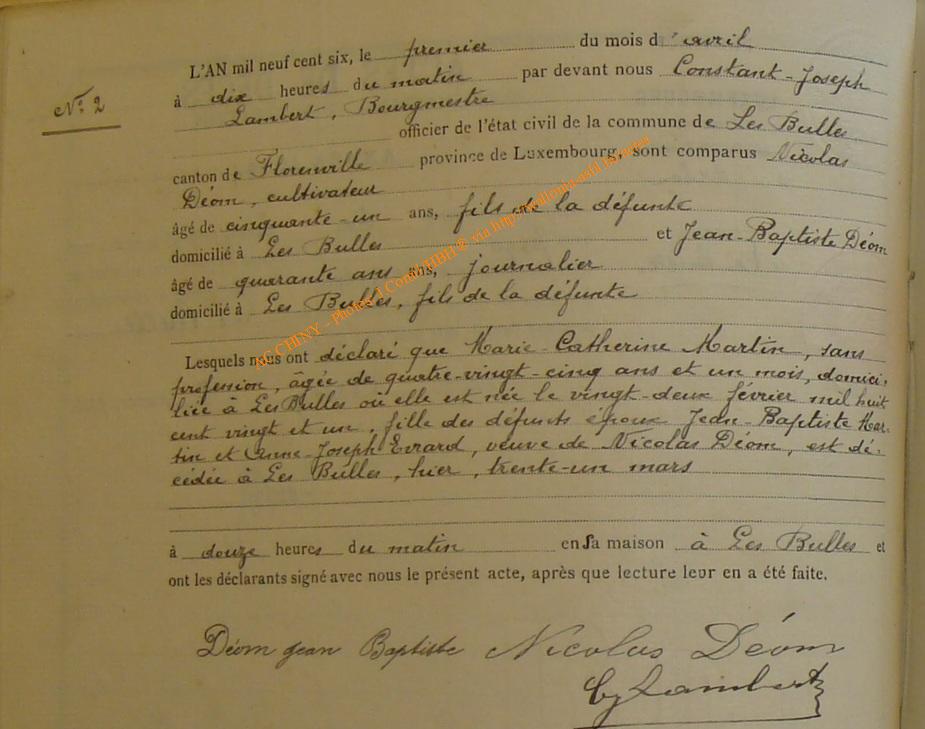 L'AN mil neuf cent six, le premier du mois d'avril
N° 2
à dix heures du matin par devant nous Constant-Joseph
Lambert, Bourgmestre
officier de l'état civil de la commune de Les Bulles
canton de Florenville province de Luxembourg, sont comparus Nicolas
Déom, cultivateur
âgé de cinquante-un ans, fils de la défunte
domicilié à Les Bulles et Jean-Baptiste Déom
âgé de quarante ans ans, journalier
domicilié à Les Bulles, fils de la défunte
Lesquels nous ont déclaré que Marie-Catherine Martin, sans
profession, âgée de quatre-vingt-cinq ans et un mois, domici-
liée à Les Bulles où elle est née le vingt-deux février mil huit
cent vingt et un, fille des défunts époux Jean-Baptiste Mar-
tin et Anne-Joseph Evrard, veuve de Nicolas Déom, est dé-
cédée à Les Bulles, hier, trente-un mars
à douze heures du matin en sa maison à Les Bulles et
ont les déclarants signé avec nous le présent acte, après que lecture leur en a été faite.
Déom jean Baptiste Nicolas Déom
CjLambert
AC CHINY - Photos J Comil HBH ® via